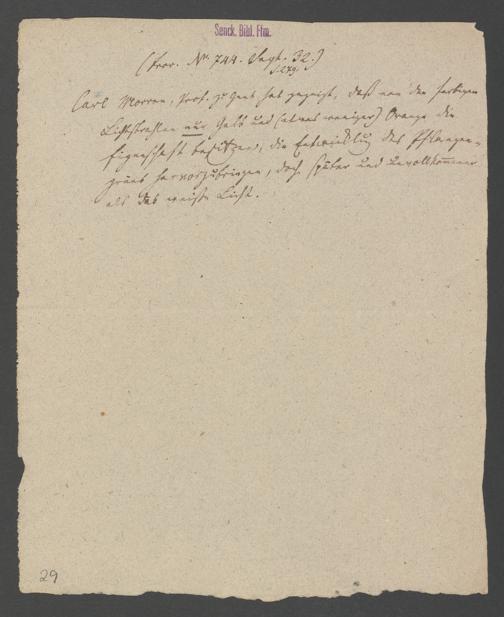 Senck. Bibl. Ffm.
(Fror. No. 744. Sept. 32.)
S. 279.
Carl Morren, Prof. zu Gent hat gezeigt, daß von den farbigen
Lichtstrahlen nur Gelb und (etwas weniger) Orange die
Eigenschaft besitzen, die Entwicklung des Pflanzen-
grüns hervorzubringen, doch später und unvollkommener
als das weiße Licht.
29